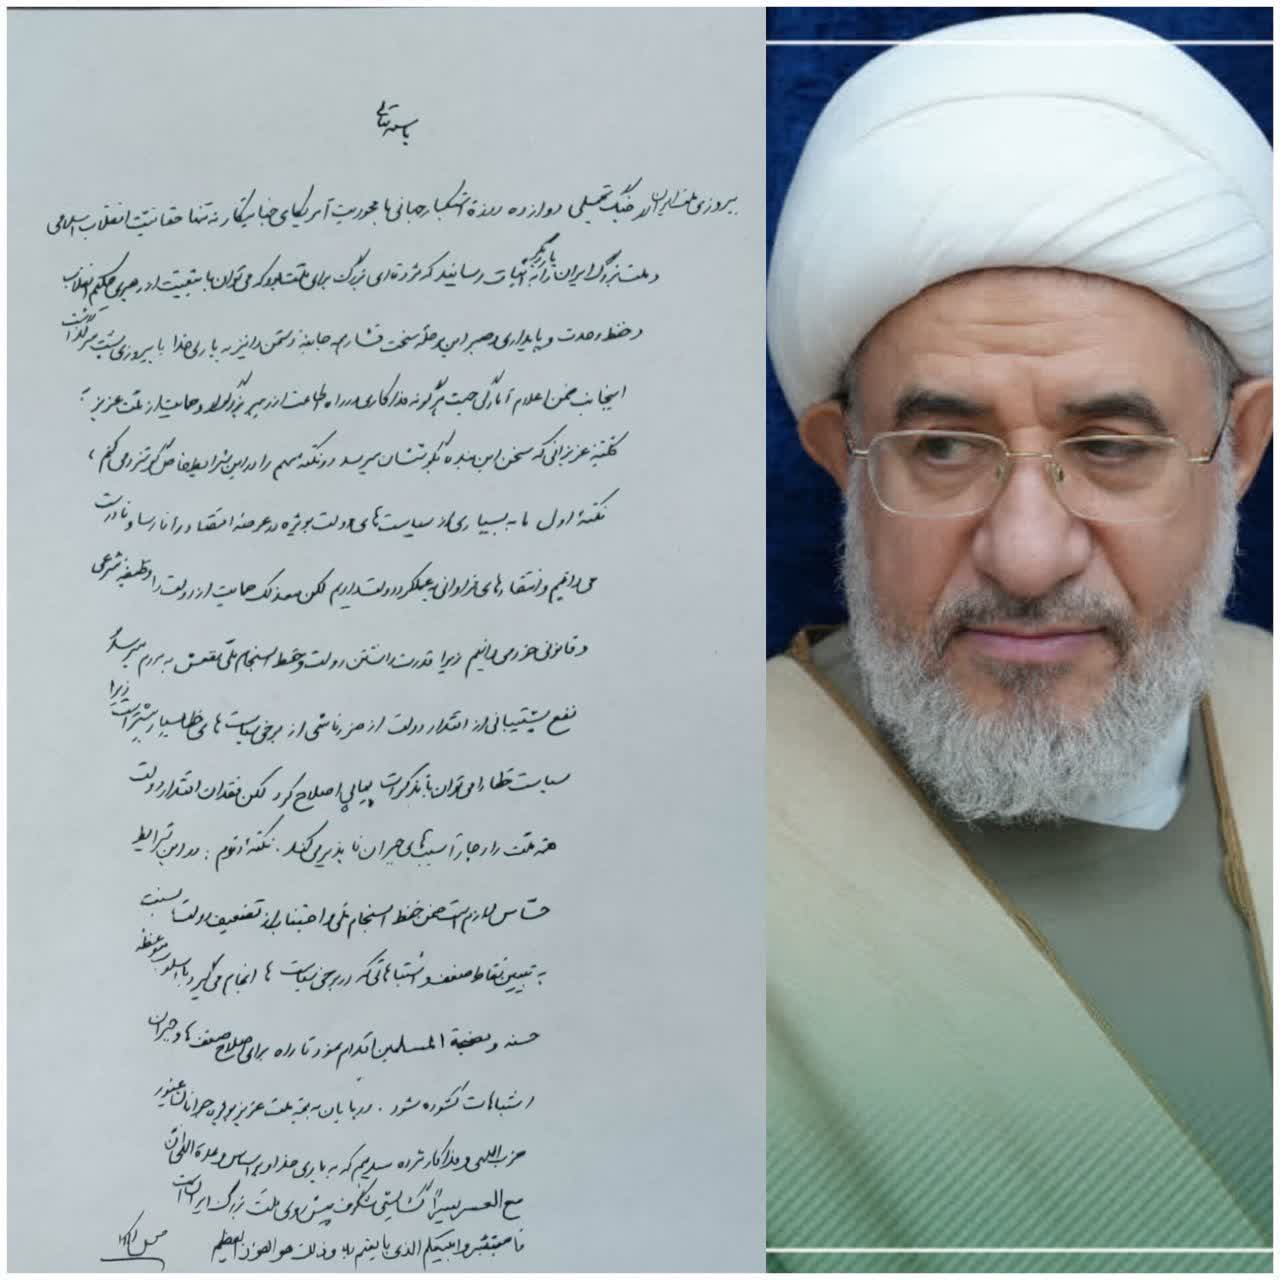 باسمه تعالی
پیروزی ملت ایران در جنگ تحمیلی دوازده روزهٔ استکبار جهانی با محوریت آمریکای جنایتکار نه تنها حقانیت انقلاب اسلامی
و ملت بزرگ ایران را بار دیگر به اثبات رسانید که مژده‌ای بزرگ برای ملت ما بود که می‌توان با تبعیت از رهبری حکیم انقلاب
و حفظ وحدت و پایداری و صبر این مرحله سخت فشار همه جانبه دشمن را نیز به یاری خدا با پیروزی پشت سر گذاشت
اینجانب ضمن اعلام آمادگی جهت هرگونه فداکاری در راه اطاعت از رهبر بزرگوار و حمایت از ملت عزیز
کلیه عزیزانی که سخن این بنده به گوششان میرسد دو نکته مهم را در این شرایط خاص گوشزد می کنم:
نکتهٔ اول ما به بسیاری از سیاست های دولت بویژه در عرصه اقتصاد را نارسا و نادرست
می دانیم و انتقادهای فراوانی به عملکرد دولت داریم لکن معذلک حمایت از دولت را وظیفه شرعی
و قانونی خود می دانیم زیرا قدرت داشتن دولت و حفظ انسجام ملی نفعش به مردم میرسد
نفع پشتیبانی از اقتدار دولت از ضرر ناشی از برخی سیاست های خطا بسیار بیشتر است زیرا
سیاست خطا را می توان با تذکرات پیاپی اصلاح کرد لکن فقدان اقتدار دولت
همه ملت را دچار آسیب‌های جبران ناپذیر می کند. نکتهٔ دوم: در این شرایط
حساس لازم است ضمن حفظ انسجام ملی و اجتناب از تضعیف دولت نسبت
به تبیین نقاط ضعف و اشتباهاتی که در برخی سیاست ها انجام می گیرد با اسلوب موعظه
حسنه و نصیحة المسلمین اقدام نمود تا راه برای اصلاح ضعف ها و جبران
اشتباهات گشوده شود. در پایان به همه ملت عزیز بویژه جوانان غیور
حزب اللهی و فداکار مژده میدهم که به یاری خدا و بر اساس وعدهٔ الهی ان
مع العسر یسراً گشایشی شگرف پیش روی ملت بزرگ ایران است
فاستبشروا ببیعکم الذی بایعتم به و ذلک هو الفوز العظیم